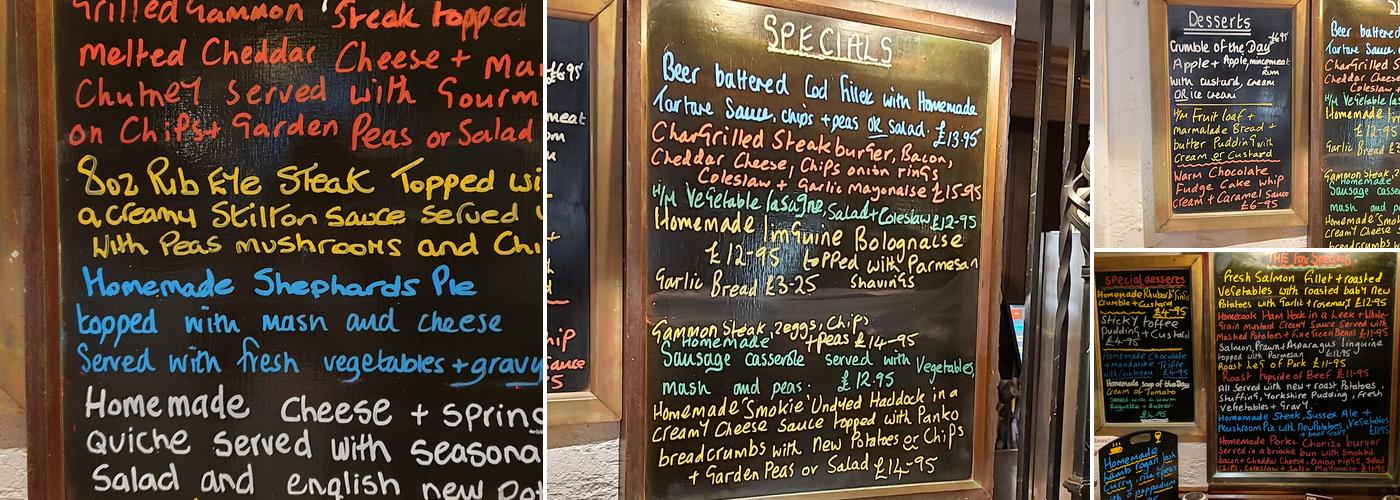 Grilled Gammon Steak topped
melted Cheddar Cheese +
Chutney served with Gourm
on Chips + Garden Peas or Salad
8oz Rib Eye Steak Topped wi
a creamy Stilton Sauce served
With Peas mushrooms and Chi
Homemade Shephards Pie
topped with mash and cheese
Served with fresh vegetables + gravy
Homemade Cheese + Spring
Quiche served with seasona
Salad and english new Pot
SPECIALS
Beer battered Cod fillet with Homemade
Tartare Sauce, chips + peas OR salad. £13.95
CharGrilled Steak burger, Bacon,
Cheddar Cheese, Chips onion rings
Coleslaw + Garlic Mayonaise £15-95
H/M Vegetable lasagne, Salad + Coleslaw £12-95
Homemade linguine Bolognaise
£12-95 topped with Parmesan
Garlic Bread £3-25 shavings
Gammon Steak, 2eggs, Chips
+ peas £14-95
Homemade
Sausage casserole served with Vegetables,
mash and peas. £12.95
Homemade 'Smokie' Undyed Haddock in a
Creamy Cheese Sauce topped with Panko
breadcrumbs with New Potatoes or Chips
+ Garden Peas or Salad £14-95
Desserts
Crumble of the Day £6.95
Apple + Apple, mincemeat
Rum
with custard, cream
OR ice cream
H/M Fruit loaf +
marmalade Bread +
butter Pudding with
Cream or Custard
Warm Chocolate
Fudge Cake whip
cream + Caramel Sauce
£6-95
Beer battered
Tartare Sauce
CharGrilled S
Cheddar Chees
Coleslaw +
H/M Vegetable
Homemade
£12-95
Garlic Bread £3
Gammon Steak
Homemade
Sausage casse
mash and peas
Homemade 'Smok
Creamy Cheese S
breadcrumbs w
Special desserts
Homemade Rhubarb
Crumble + Custard
£4-95
Sticky toffee
Pudding + Custard
£4-95
Homemade Chocolate
+ Mandarine Trifle
with Cream £4-95
Homemade Soup of the Day
Cream of Tomato
Served with a warm
Baguette + Butter
THE Fox Specials
Fresh Salmon Fillet + roasted
Vegetables with roasted baby New
Potatoes with Garlic + rosemary £12-95
Homecook Ham Hock in a Leek + Whole-
Grain mustard Creamy Sauce Served with
Mashed Potatoes + Fine Green Beans £11-95
Salmon, Prawn + Asparagus linguine
topped with Parmesan £12.95
Roast Leg of Pork £11-95
Roast topside of Beef £11-95
All Served with new + roast Potatoes,
Stuffing, Yorkshire Pudding, Fresh
Vegetables + Gravy
Homemade Steak, Sussex Ale +
Mushroom Pie with New Potatoes, Vegetables
+ beef Gravy
Homemade Pork + Chorizo burger
Served in a brioche bun with Smoked
bacon + Cheddar Cheese, Onion rings, Salad
Chips, Coleslaw + Salsa Mayonaise £11-95
Homemade
Lamb rogan Josh
Curry, rice + peas
with a poppadum